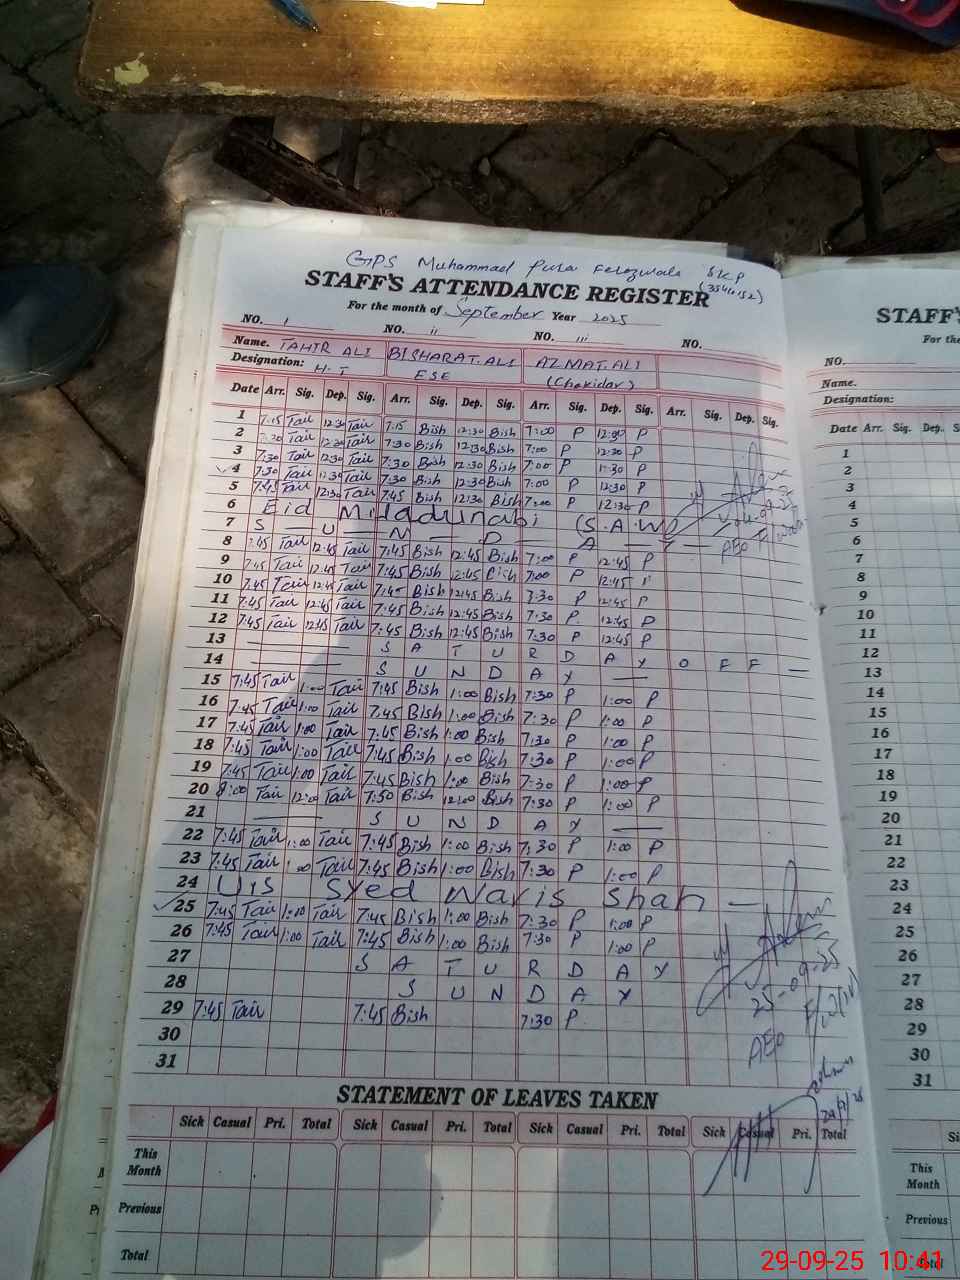 GPS Muhammad Pura Ferozwala SKP
STAFF'S ATTENDANCE REGISTER
For the month of September Year 2025
NO. i NO. ii NO. iii NO.
Name. TAHIR ALI BISHARAT.ALI AZMAT.ALI
Designation: H.T ESE (Chokidar)
Date Arr. Sig. Dep. Sig. Arr. Sig. Dep. Sig. Arr. Sig. Dep. Sig. Arr. Sig. Dep. Sig.
1 7:15 Tair 12:30 Tair 7:15 Bish 12:30 Bish 7:00 P 12:30 P
2 7:30 Tair 12:30 Tair 7:30 Bish 12:30 Bish 7:00 P 12:30 P
3 7:30 Tair 12:30 Tair 7:30 Bish 12:30 Bish 7:00 P 12:30 P
4 7:30 Tair 12:30 Tair 7:30 Bish 12:30 Bish 7:00 P 12:30 P
5 7:45 Tair 12:30 Tair 7:45 Bish 12:30 Bish 7:00 P 12:30 P
6 Eid Miladunabi (S.A.W)
7 S — U — N — D — A — Y —
8 7:45 Tair 12:45 Tair 7:45 Bish 12:45 Bish 7:00 P 12:45 P
9 7:45 Tair 12:45 Tair 7:45 Bish 12:45 Bish 7:00 P 12:45 P
10 7:45 Tair 12:45 Tair 7:45 Bish 12:45 Bish 7:30 P 12:45 P
11 7:45 Tair 12:45 Tair 7:45 Bish 12:45 Bish 7:30 P 12:45 P
12 7:45 Tair 12:45 Tair 7:45 Bish 12:45 Bish 7:30 P 12:45 P
13 — S A T U R D A Y O F F —
14 — S U N D A Y —
15 7:45 Tair 1:00 Tair 7:45 Bish 1:00 Bish 7:30 P 1:00 P
16 7:45 Tair 1:00 Tair 7:45 Bish 1:00 Bish 7:30 P 1:00 P
17 7:45 Tair 1:00 Tair 7:45 Bish 1:00 Bish 7:30 P 1:00 P
18 7:45 Tair 1:00 Tair 7:45 Bish 1:00 Bish 7:30 P 1:00 P
19 7:45 Tair 1:00 Tair 7:45 Bish 1:00 Bish 7:30 P 1:00 P
20 8:00 Tair 12:00 Tair 7:50 Bish 12:00 Bish 7:30 P 1:00 P
21 — S U N D A Y —
22 7:45 Tair 1:00 Tair 7:45 Bish 1:00 Bish 7:30 P 1:00 P
23 7:45 Tair 1:00 Tair 7:45 Bish 1:00 Bish 7:30 P 1:00 P
24 Urs Syed Waris Shah —
25 7:45 Tair 1:00 Tair 7:45 Bish 1:00 Bish 7:30 P 1:00 P
26 7:45 Tair 1:00 Tair 7:45 Bish 1:00 Bish 7:30 P 1:00 P
27 S A T U R D A Y
28 S U N D A Y
29 7:45 Tair 7:45 Bish 7:30 P
30
31
AEO
25-09-25
AEO
STATEMENT OF LEAVES TAKEN
Sick Casual Pri. Total Sick Casual Pri. Total Sick Casual Pri. Total Sick Casual Pri. Total
This Month
Previous
Total
STAFF'S
For the
NO.
Name.
Designation:
Date Arr. Sig. Dep. Sig.
1
2
3
4
5
6
7
8
9
10
11
12
13
14
15
16
17
18
19
20
21
22
23
24
25
26
27
28
29
30
31
This Month
Previous
Total
29-09-25 10:41